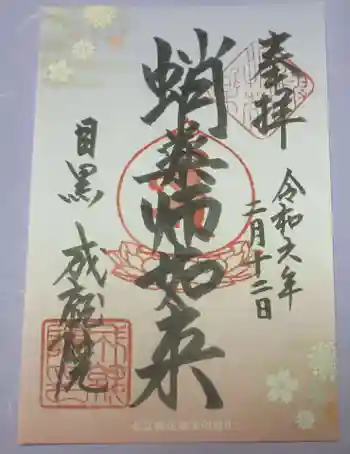 奉拝
令和六年
二月十二日
蛸薬師如来
目黒
成就院